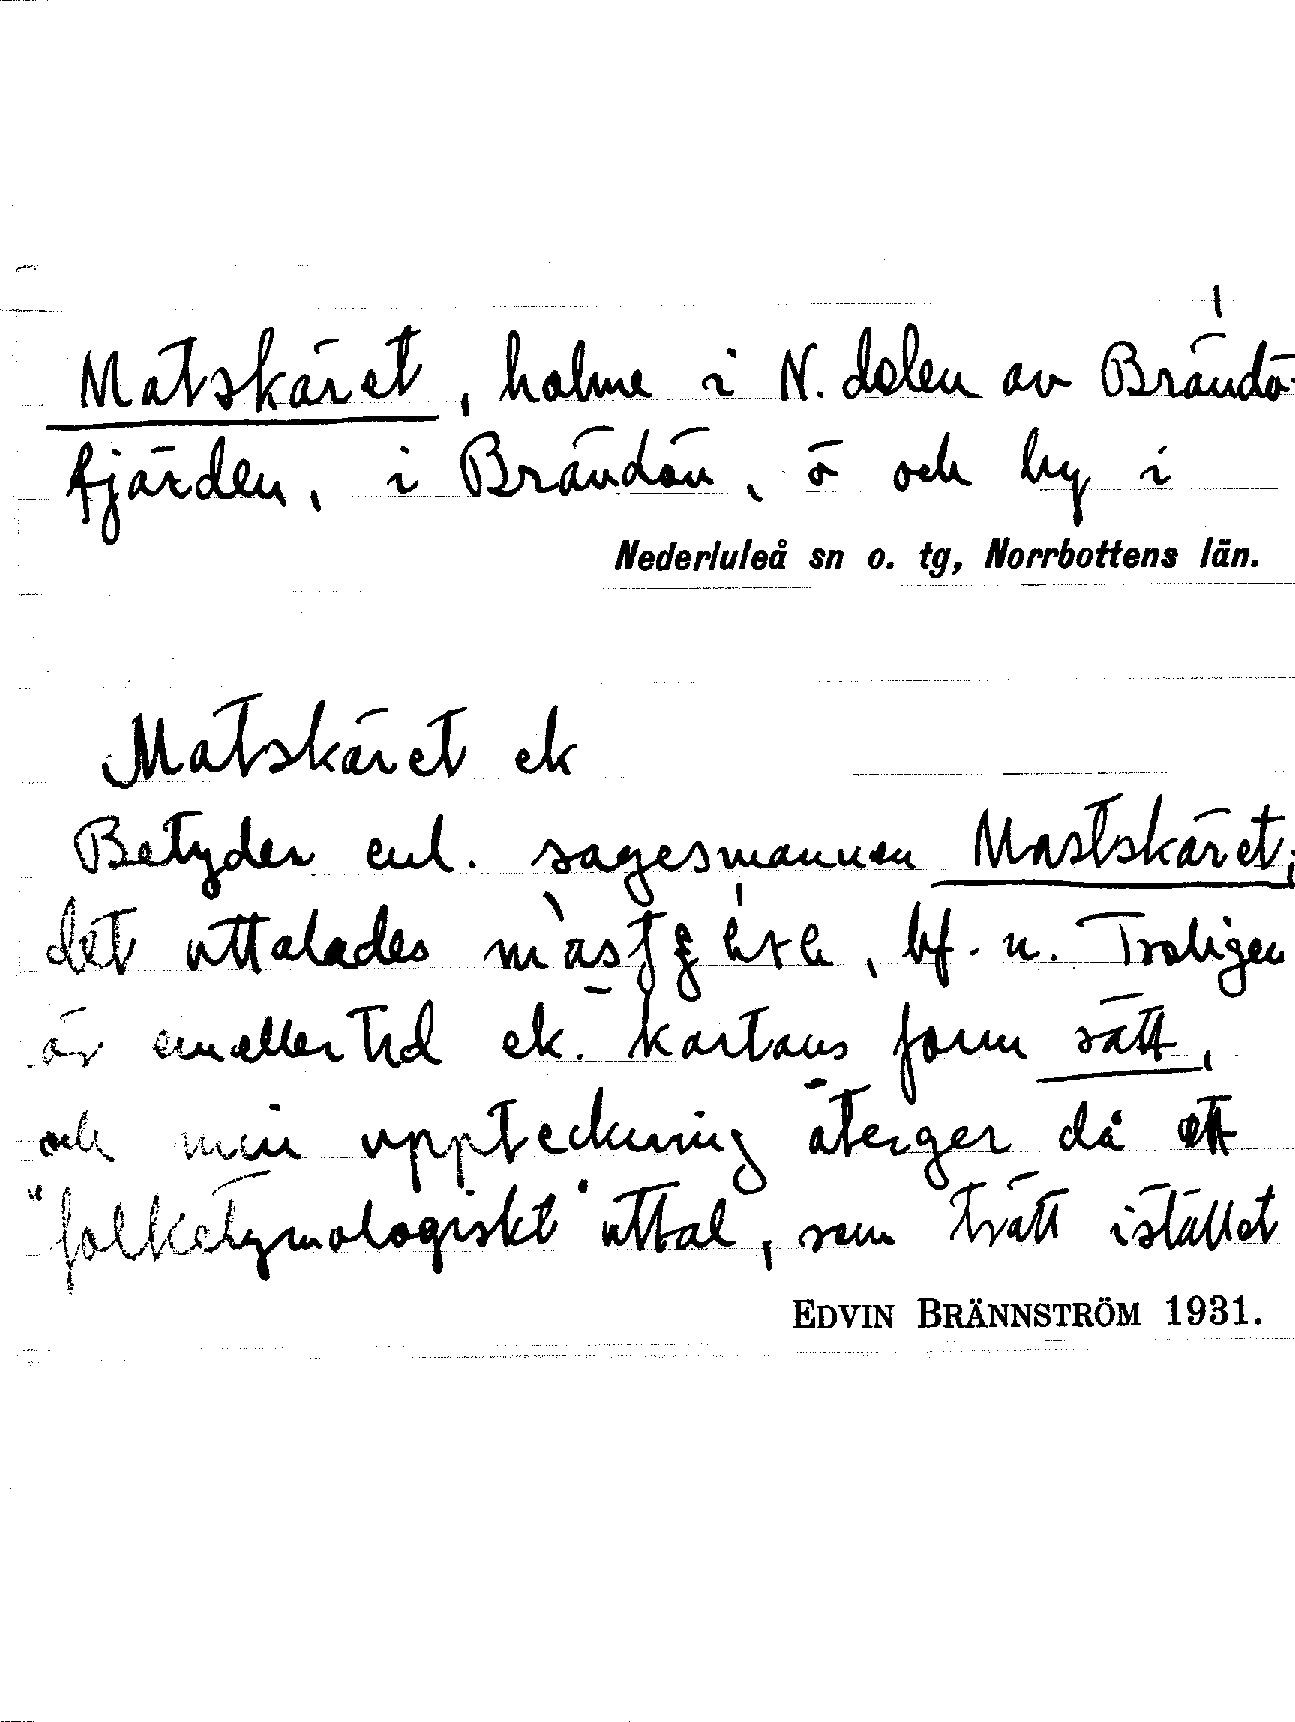 1
Matskäret, holme i N. delen av Brändö-
fjärden, i Brändön, ö och by i
Nederluleå sn o. tg, Norrbottens län.
Matskäret ek
Betyder enl. sagesmannen Mastskäret;
det uttalades , bf. n. Troligen
är emellertid ek. kartans form rätt,
och min uppteckning återger då ett
"folketymologiskt" uttal, som trätt istället
EDVIN BRÄNNSTRÖM 1931.